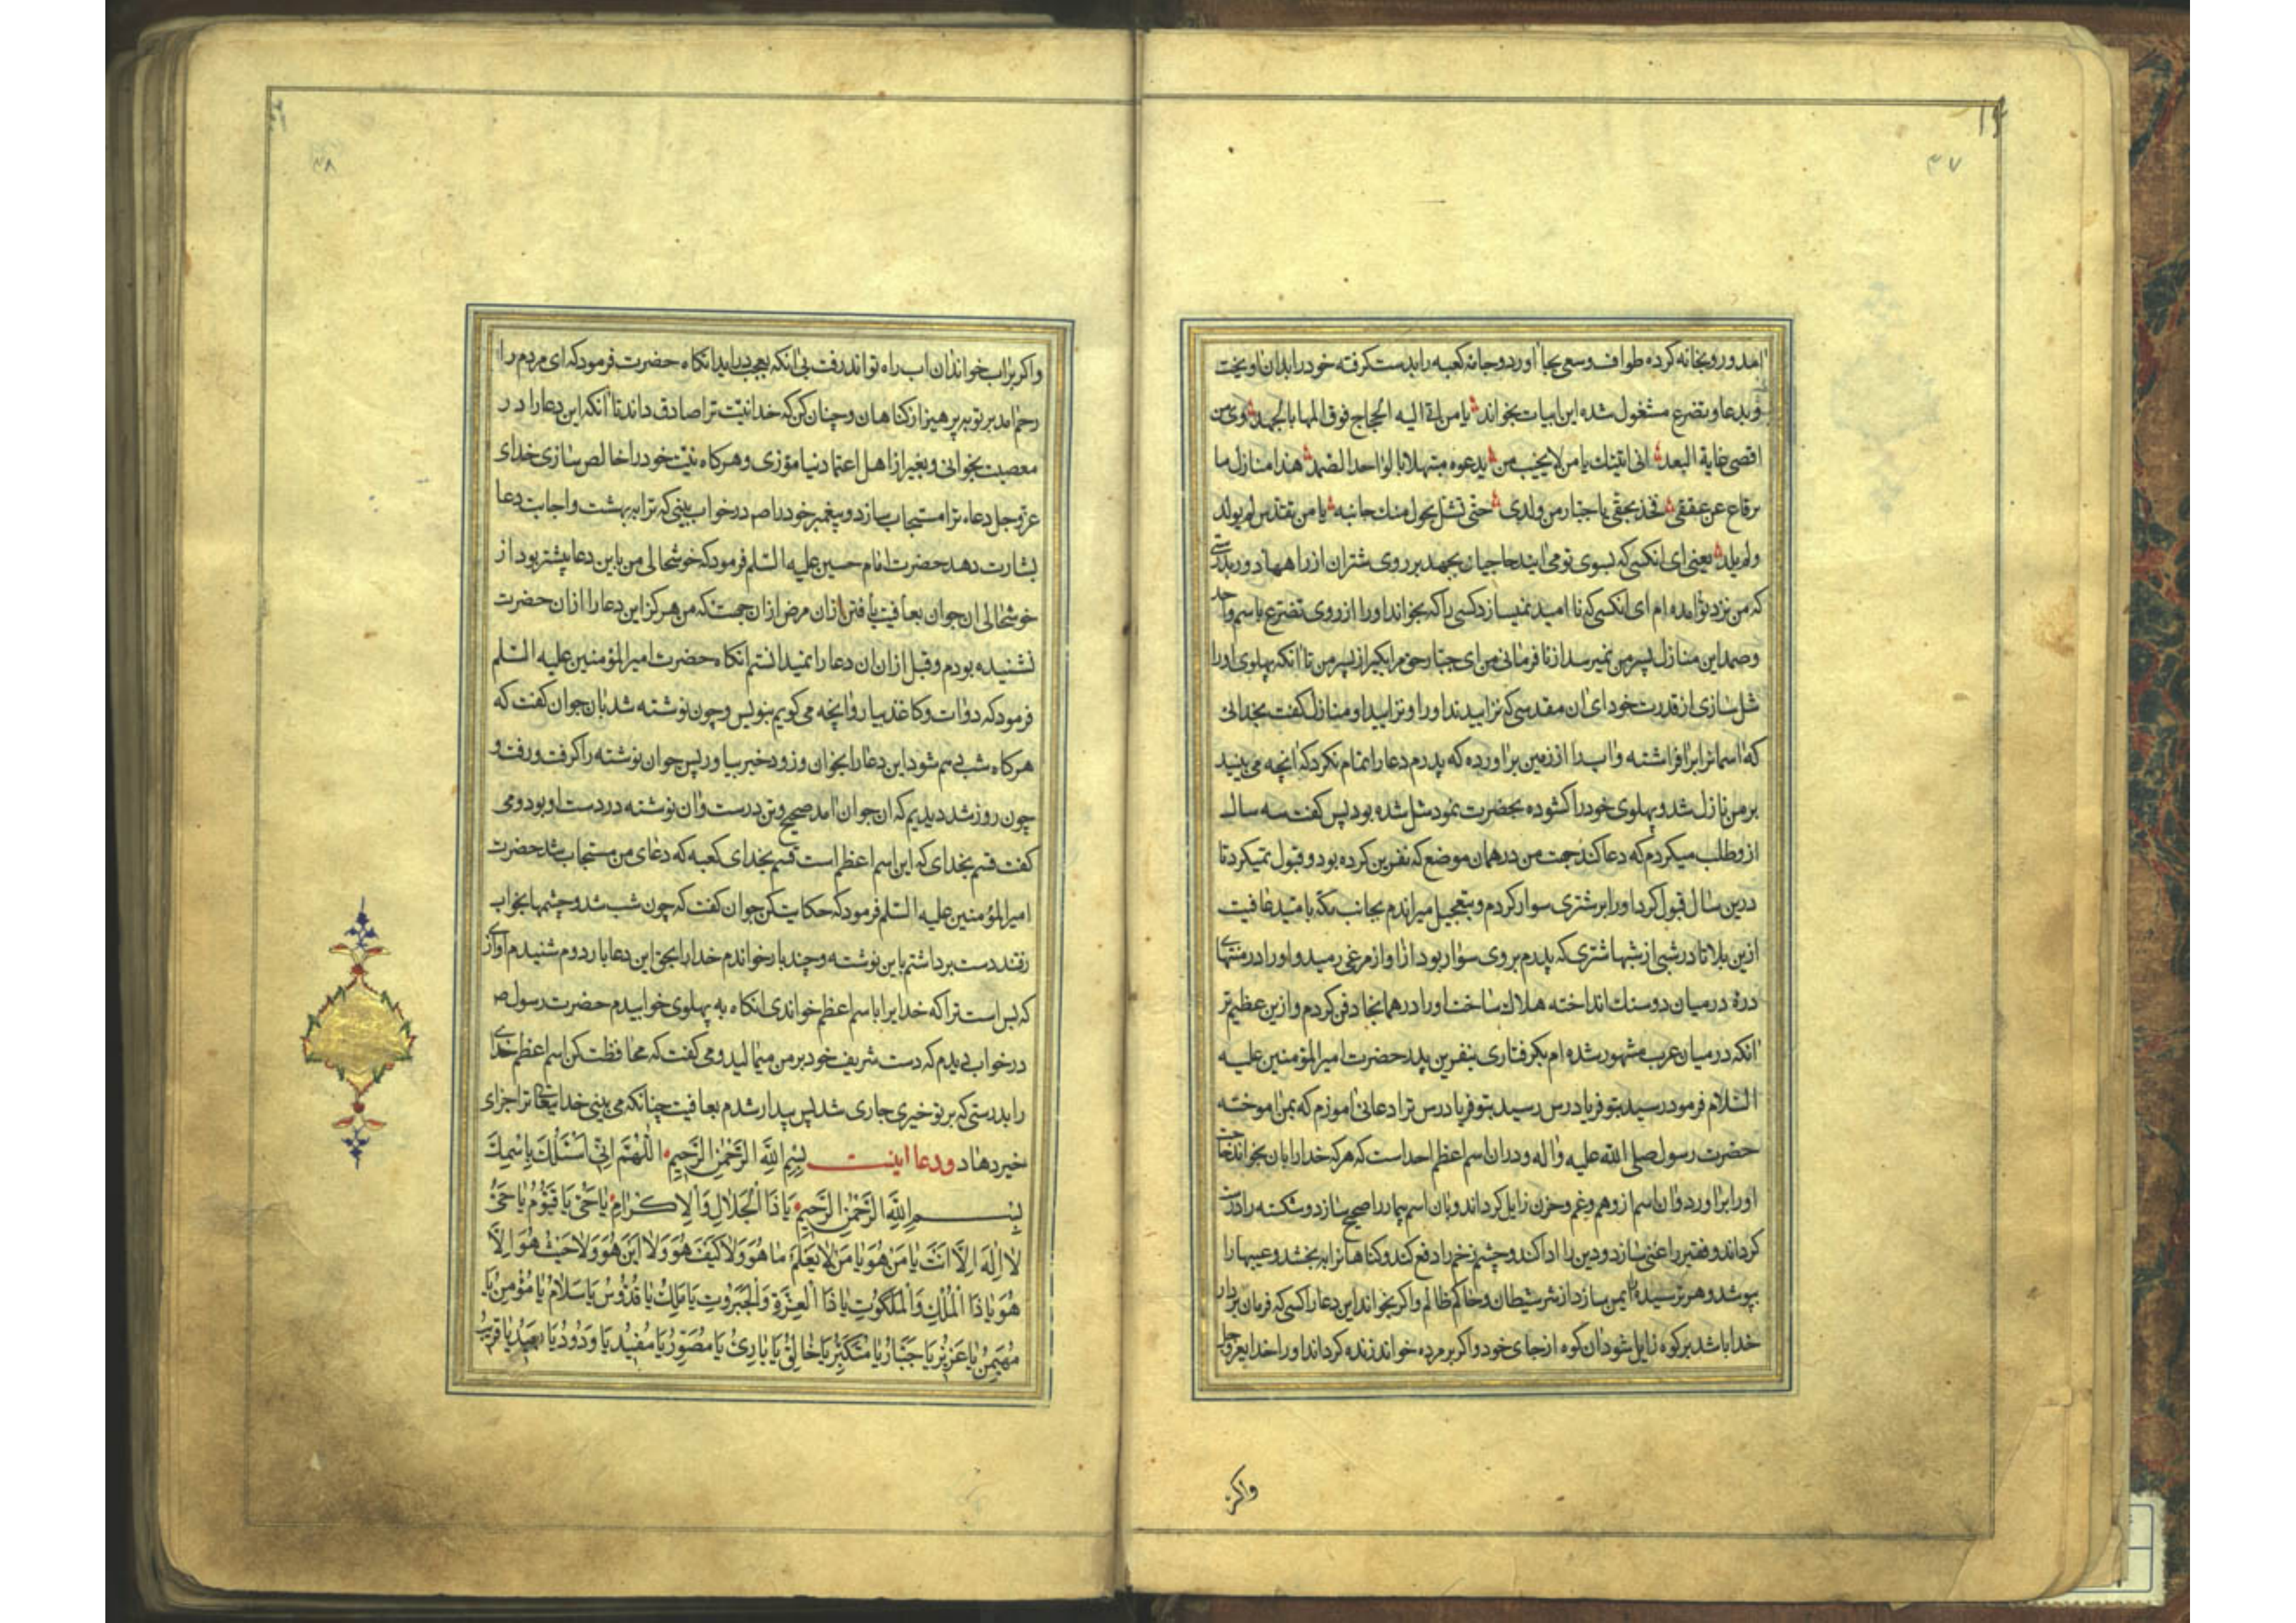 ۴۷
امد و رو بخانه کرده طواف و سعی بجا اورد و جامه کعبه را بدست کرفته خود را بدان اویخت
و بدعا و بتضرع مشغول شده این ابیات بخواند یا من الیه الحجاج فوق المها بالجهد
اقصی غایة البعد انی اتیتك یا من لا یخیب من یدعوه مبتهلا بالواحد الصمد هذا منازل ما
یرتاع عن عققی فخذ بحقی یا جبار من ولدی حتی تشل بحول منك جانبه یا من تقدس لم یولد
ولم یلد یعنی ای انکسی که بسوی تو می ایند حاجیان بجهد بر روی شتران از راههاء دور بدرستی
که من نزد تو امده ام ای انکسی که نا امید نمیسازد کسی را که بخواند او را از روی تضرع باسم واحد
و صمد این منازل پسر من نمیرسد از نافرمانی من ای جبار حق مرا بکیر از پسر من تا انکه پهلوی او را
شل سازی از قدرت خود ای ان مقدسی که نزاییدند او را و نزایید او منازل کفت بخدائی
که اسمانرا برافراشته و اب را از زمین براورده که پدرم دعا را تمام نکرد که انچه می بینید
بر من نازل شد و پهلوی خود را کشوده بحضرت نمود شل شده بود پس کفت سه سال
از و طلب میکردم که دعا کند جهت من در همان موضع که نفرین کرده بود و قبول نمیکرد تا
درین سال قبول کرد او را بر شتری سوار کردم و بتعجیل میراندم بجانب مکه بامید عافیت
ازین بلا تا در شبی از شبها شتری که پدرم بر وی سوار بود از اواز مرغی رمید و او را در منتهای
دره در میان دو سنك انداخته هلاك ساخت او را در همانجا دفن کردم و ازین عظیم تر
انکه در میان عرب مشهور شده ام بکرفتاری بنفرین پدر حضرت امیرالمؤمنین علیه
السلام فرمود رسید بتو فریادرس رسید بتو فریادرس ترا دعائی اموزم که بمن اموخته
حضرت رسول صلی الله علیه و اله و دران اسم اعظم احد است که هرکه خدا را بان بخواند حاجت
او را براورد و ان اسم از و هم و غم و حزن زایل کرداند و بان اسم بیمار را صحیح سازد و شکسته را درست
کرداند و فقیر را غنی سازد و دین را ادا کند و چشم زخم را دفع کند و کناهانرا به بخشد و عیبها را
بپوشد و هر ترسیده را ایمن سازد از شر شیطان و حاکم ظالم و اکر بخواند این دعا را کسی که فرمان بردار
خدا باشد بر کوه زایل شود ان کوه از جای خود و اکر بر مرده خواند زنده کرداند او را خدایعزوجل
واکر
۴۸
واکر براب خواند ان اب راه تواند رفت بی انکه بعجب دراید انکاه حضرت فرمود که ای مردم را
رحم امد بر تو بپرهیز از کناهان و چنان کن که خدا نیّت ترا صادق داند تا انکه این دعا را در
معصیت بخوانی و بغیر از اهل اعتماد نیاموزی و هرکاه نیّت خود را خالص سازی خدای
عزوجل دعاء ترا مستجاب سازد و پیغمبر خود را صم در خواب بینی که ترا به بهشت و اجابت دعا
بشارت دهد حضرت امام حسین علیه السلم فرمود که خوشحالی من باین دعا پیشتر بود از
خوشحالی ان جوان بعافیت یافتن ازان مرض ازان جهت که من هرکز این دعا را ازان حضرت
نشنیده بودم و قبل ازان ان دعا را نمیدانستم انکاه حضرت امیرالمؤمنین علیه السلم
فرمود که دوات و کاغذ بیار و انچه می کویم بنویس و چون نوشته شد بان جوان کفت که
هرکاه شب دهم شود این دعا را بخوان و زود خبر بیاور پس جوان نوشته را کرفت و رفت و
چون روز شد دیدیم که ان جوان امد صحیح و تن درست و ان نوشته در دست او بود و می
کفت قسم بخدای که این اسم اعظم است قسم بخدای کعبه که دعای من مستجاب شد حضرت
امیرالمؤمنین علیه السلم فرمود که حکایت کن جوان کفت که چون شب شد و چشمها بخواب
رفتند دست برداشتم باین نوشته و چند بار خواندم خدا را بحق این دعا بار دوم شنیدم اوازی
که بس است ترا که خدایرا باسم اعظم خواندی انکاه به پهلوی خوابیدم حضرت رسول صم
در خواب دیدم که دست شریف خود بر من میمالید و می کفت که محافظت کن اسم اعظم خدای
را بدرستی که بر تو خیری جاری شد پس بیدار شدم بعافیت چنانکه می بینی خدایتعالی ترا جزای
خیر دهاد ودعا اینست بِسْمِ اللهِ الرَّحْمٰنِ الرَّحِیمِ اَللّٰهُمَّ اِنّی اَسْئَلُكَ بِاسْمِكَ
بِسْمِ اللهِ الرَّحْمٰنِ الرَّحِیمِ یَا ذَا الْجَلَالِ وَالْاِكْرَامِ یَا حَیُّ یَا قَیُّومُ یَا حَیُّ
لَا اِلٰهَ اِلَّا اَنْتَ یَا مَنْ هُوَ یَا مَنْ لَا یَعْلَمُ مَا هُوَ وَلَا كَیْفَ هُوَ وَلَا اَیْنَ هُوَ وَلَا حَیْثُ هُوَ اِلَّا
هُوَ یَا ذَا الْمُلْكِ وَالْمَلَكُوتِ یَا ذَا الْعِزَّةِ وَالْجَبَرُوتِ یَا مَلِكُ یَا قُدُّوسُ یَا سَلَامُ یَا مُؤْمِنُ یَا
مُهَیْمِنُ یَا عَزِیزُ یَا جَبَّارُ یَا مُتَكَبِّرُ یَا خَالِقُ یَا بَارِئُ یَا مُصَوِّرُ یَا مُفِیدُ یَا وَدُودُ یَا بَعِیدُ یَا قَرِیبُ